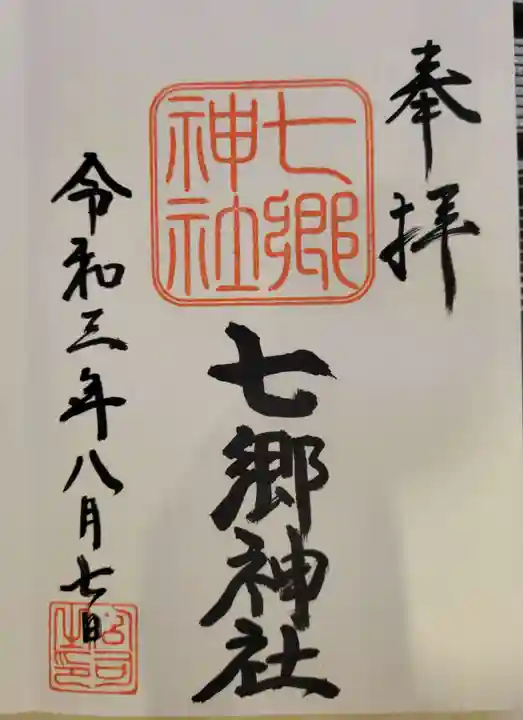 奉拝
七郷
神社
七郷神社
令和三年八月七日
宮司
之印